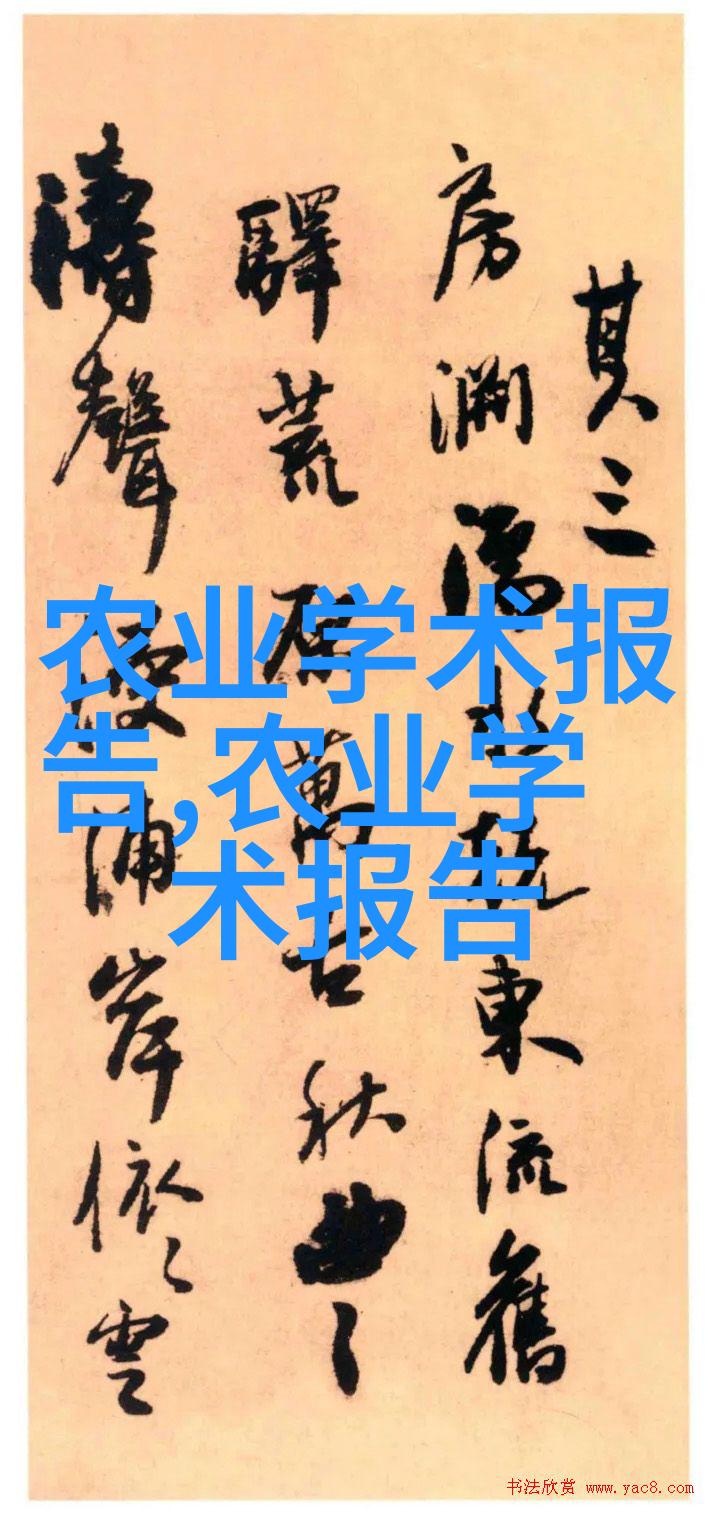 其三
房東流舊
驛荒原萬古秋曲〻
濤聲浦岸依〻雲
农业学术报
告,农业学
术报告
书法欣赏 www.yac8.com